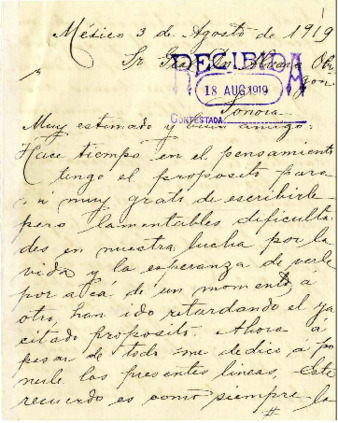 México 3 de Agosto de 1919
Sr Gral. Alvaro Obre
gon
RECIBIDA
18 AUG 1919
CONTESTADA
Sonora.
Muy estimado y buen amigo:
Hace tiempo en el pensamiento
tengo el proposito para
mi muy grato de escribirle
pero lamentables dificulta
des en nuestra lucha por la
vida y la esperanza de verle
por acá de un momento á
otro, han ido retardando el ya
citado proposito. Ahora á
pesar de todo me dedico á po
nerle las presentes lineas, este
recuerdo es como siempre la